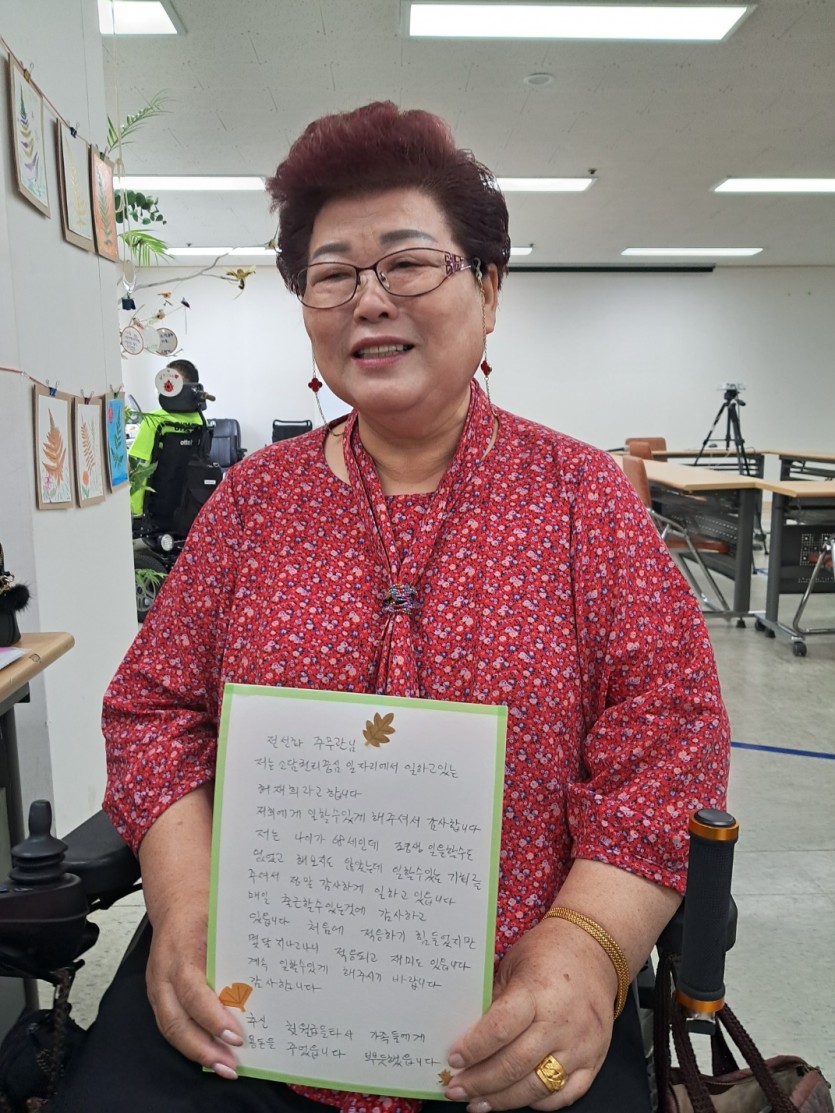 전선화 주무관님
저는 고담권리중심 일자리에서 일하고있는
허재희라고합니다
저희에게 일할수있게 해주셔서 감사합니다
저는 나이가 68세인데 일을할수도
없었고 해보지도 않았는데 일할수있는 기회를
주어서 정말 감사하게 일하고 있습니다
매일 출근할수있는것에 감사하고
있습니다 처음에 적응하기 힘들었지만
몇달 지나고나니 적응되고 재미도 있습니다
계속 일할수있게 해주시기 바랍니다
감사합니다
추신 첫월급을타서 가족들에게
용돈을 주었습니다 뿌듯했습니다